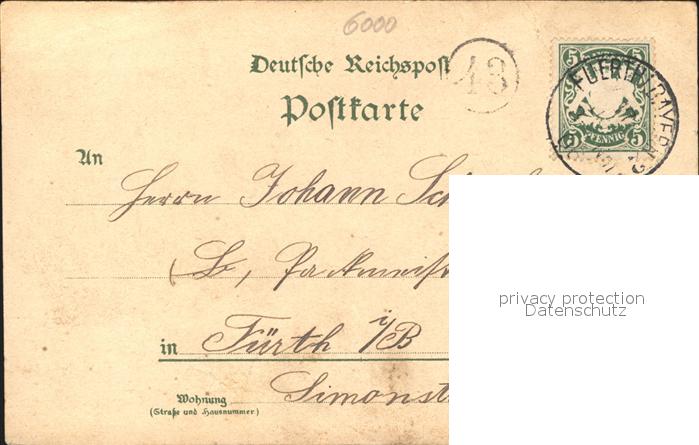 6000
Deutsche Reichspost
43
Postkarte
5 5
FUERTH BAYERN
5 PFENNIG 5
An
Herrn Johann
in Fürth i/B
Wohnung
(Straße und Hausnummer)
Simonst
privacy protection
Datenschutz